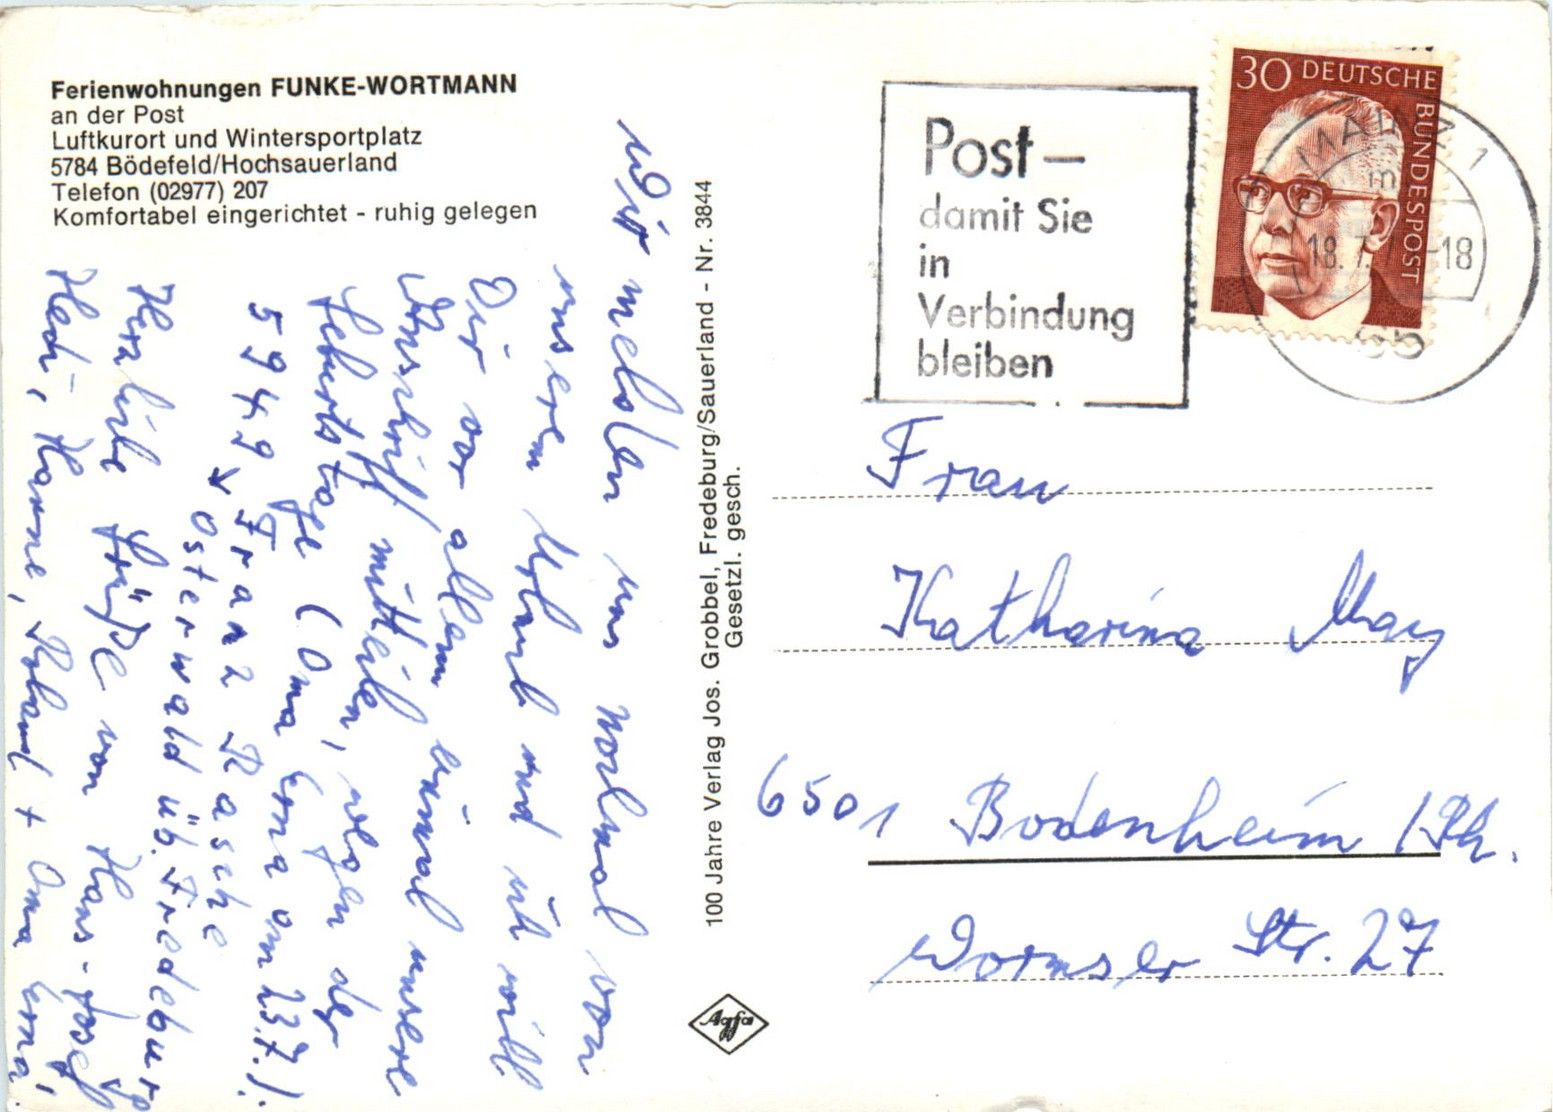 Ferienwohnungen FUNKE-WORTMANN
an der Post
Luftkurort und Wintersportplatz
5784 Bödefeld/Hochsauerland
Telefon (02977) 207
Komfortabel eingerichtet - ruhig gelegen
Wir melden uns nochmal von
unserem Urlaub und ich will
Dir vor allem einmal unsere
Anschrift mitteilen, wegen der
Geburtstage (Oma Erna am 23.7.).
5949 Franz Rasche
↘ Osterwald üb. Fredeburg
Herzliche Grüße von Hans-Josef
Hedi, Hanne, Roland + Oma Erna.
100 Jahre Verlag Jos. Grobbel, Fredeburg/Sauerland - Nr. 3844
Gesetzl. gesch.
Agfa
Post –
damit Sie
in
Verbindung
bleiben
30 DEUTSCHE
BUNDESPOST
MAINZ 1
18.7. -18
Frau
Katharina May
6501 Bodenheim /Rh.
Wormser Str. 27